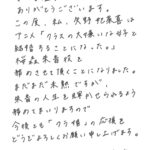 ありがとうございます。
この度、私、矢野妃菜喜は
アニメ「クラスの大嫌いな女子と
結婚することになった。」
桜森朱音役を
務めさせて頂くことになりました。
まだまだ未熟ですが、
朱音の人生を輝かせられるよう
務めてまいりますので
今後とも「クラ婚」の応援を
どうぞよろしくお願い申し上げます。